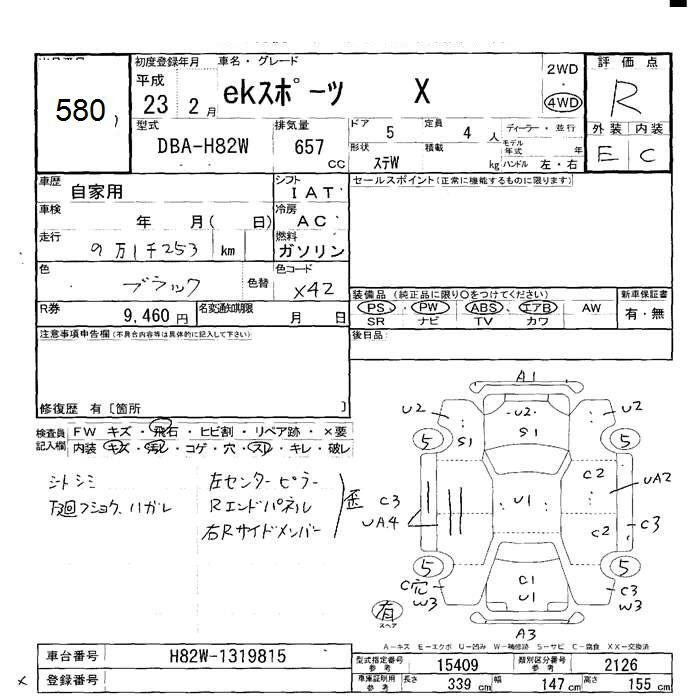 初度登録年月 車名・グレード 評価点
580
平成 23 2月 ekスポーツ X
2WD
4WD
R
型式 排気量 ドア 5 定員 4 人 ディーラー・並行
外装 内装
DBA-H82W 657 cc
形状 ステW 積載 kg モデル年式 年
ハンドル 左・右
E C
車歴 自家用 シフト IAT
セールスポイント(正常に機能するものに限ります)
車検 年 月( 日) 冷房 AC
走行 9万1千253 km 燃料 ガソリン
色 ブラック 色替 色コード X42
装備品 (純正品に限り○をつけてください) 新車保証書
R券 9,460円 名変通知期限 月 日
PS、PW、ABS、エアB AW 有・無
SR ナビ TV カワ
注意事項申告欄(不具合内容等は具体的に記入して下さい) 後日品
修復歴 有〔箇所 〕
検査員記入欄 FW キズ・飛石・ヒビ割・リペア跡・×要
内装 キズ・汚レ・コゲ・穴・スレ・キレ・破レ
シトシミ 左センターピラー
下廻フショク、ハガレ Rエンドパネル 歪
右Rサイドメンバー
A1
U2 U2 U2
S1 S1
5 5
C2
UA2
C3 U1
UA4 C2 C3
5 5
C穴 C1 C3
W3 U1 W3
有
スペア
A3
A-キズ E-エクボ U-凹み W-補修跡 S-サビ C-腐食 XX-交換済
車台番号 H82W-1319815
型式指定番号 参考 15409 類別区分番号 参考 2126
登録番号
車庫証明用 参考 長さ 339 cm 幅 147 cm 高さ 155 cm